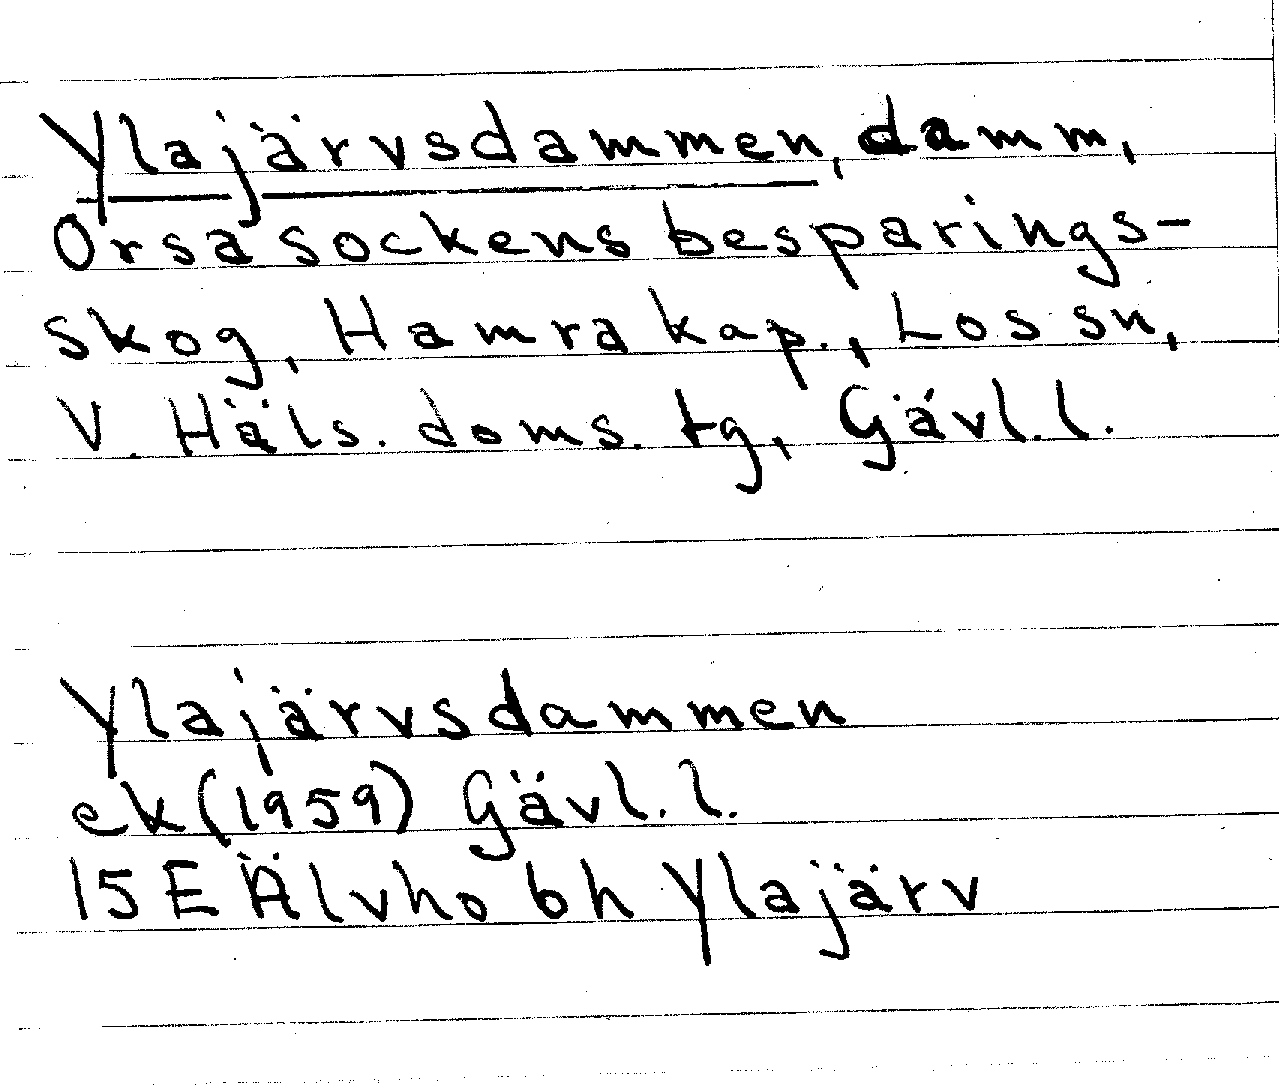 Ylajärvsdammen, damm,
Orsa sockens besparings-
skog, Hamra kap., Los sn,
V. Häls. doms. tg, Gävl. l.
Ylajärvsdammen
ek (1959) Gävl. l.
15 E Älvho bh Ylajärv